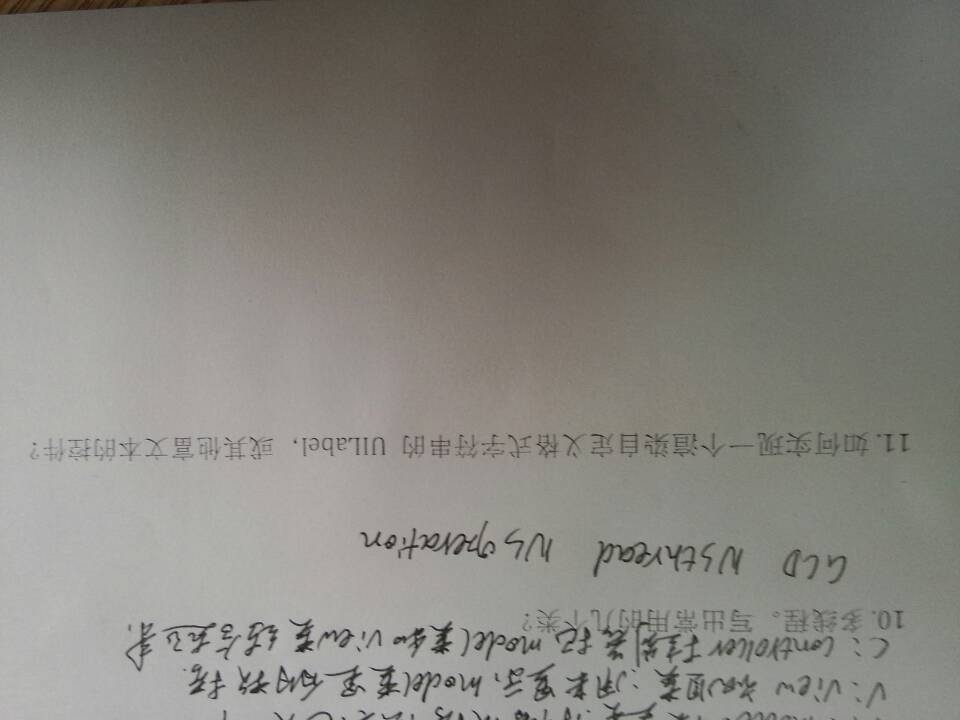 V: view 视图类:用来显示model里面的数据.
C: controller 控制器把model类和view类结合起来.
10. 多线程。写出常用的几个类?
GCD NSthread NSoperation
11. 如何实现一个渲染自定义格式字符串的 UILabel，或其他富文本的控件?